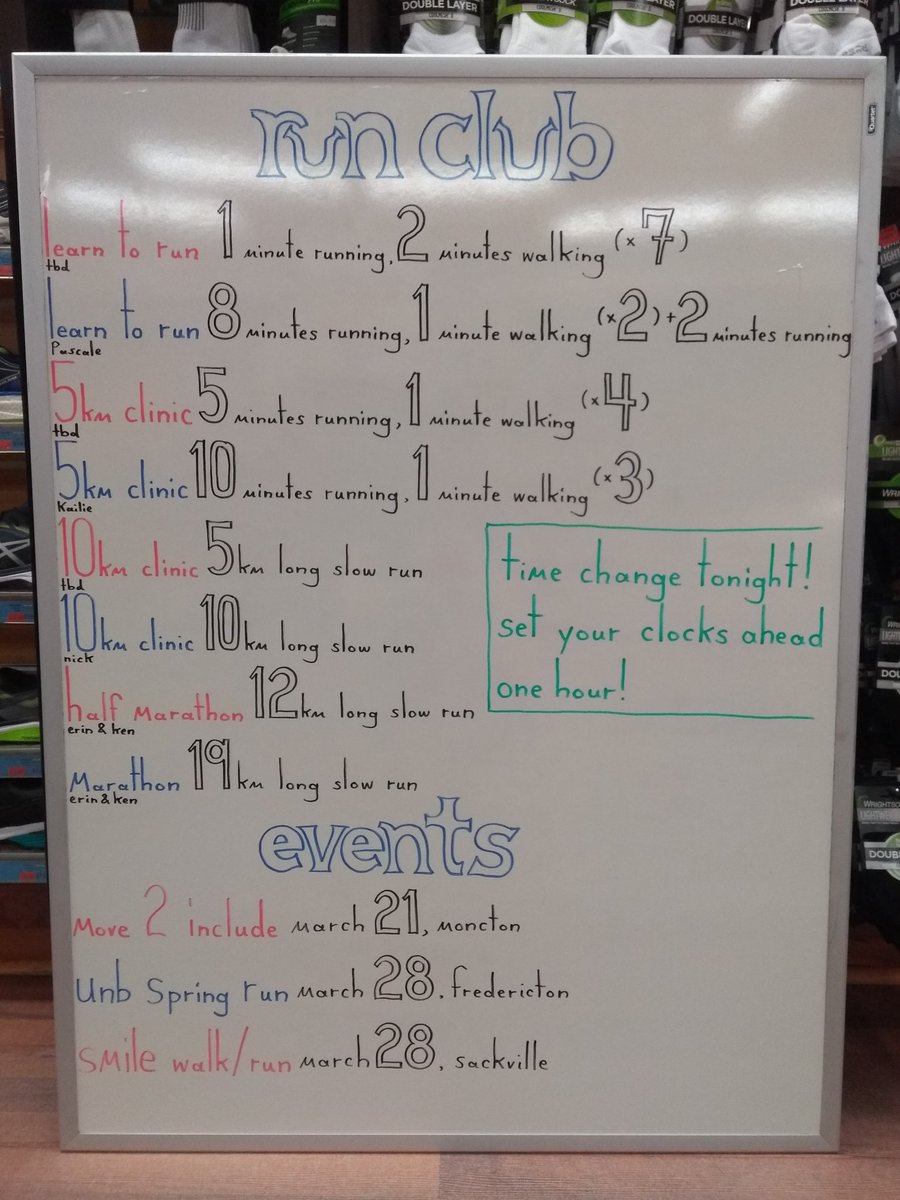 DOUBLE LAYER
DOUBLE LAYER
DOUBLE LAYER
run club
learn to run 1 minute running, 2 minutes walking (x 7)
tbd
learn to run 8 minutes running, 1 minute walking (x2) + 2 minutes running
Pascale
5km clinic 5 minutes running, 1 minute walking (x 4)
tbd
5km clinic 10 minutes running, 1 minute walking (x 3)
Kailie
10km clinic 5km long slow run
tbd
10km clinic 10km long slow run
nick
half marathon 12km long slow run
erin & ken
marathon 19km long slow run
erin & ken
time change tonight!
set your clocks ahead
one hour!
events
move 2 include march 21, moncton
unb spring run march 28, fredericton
smile walk/run march 28, sackville